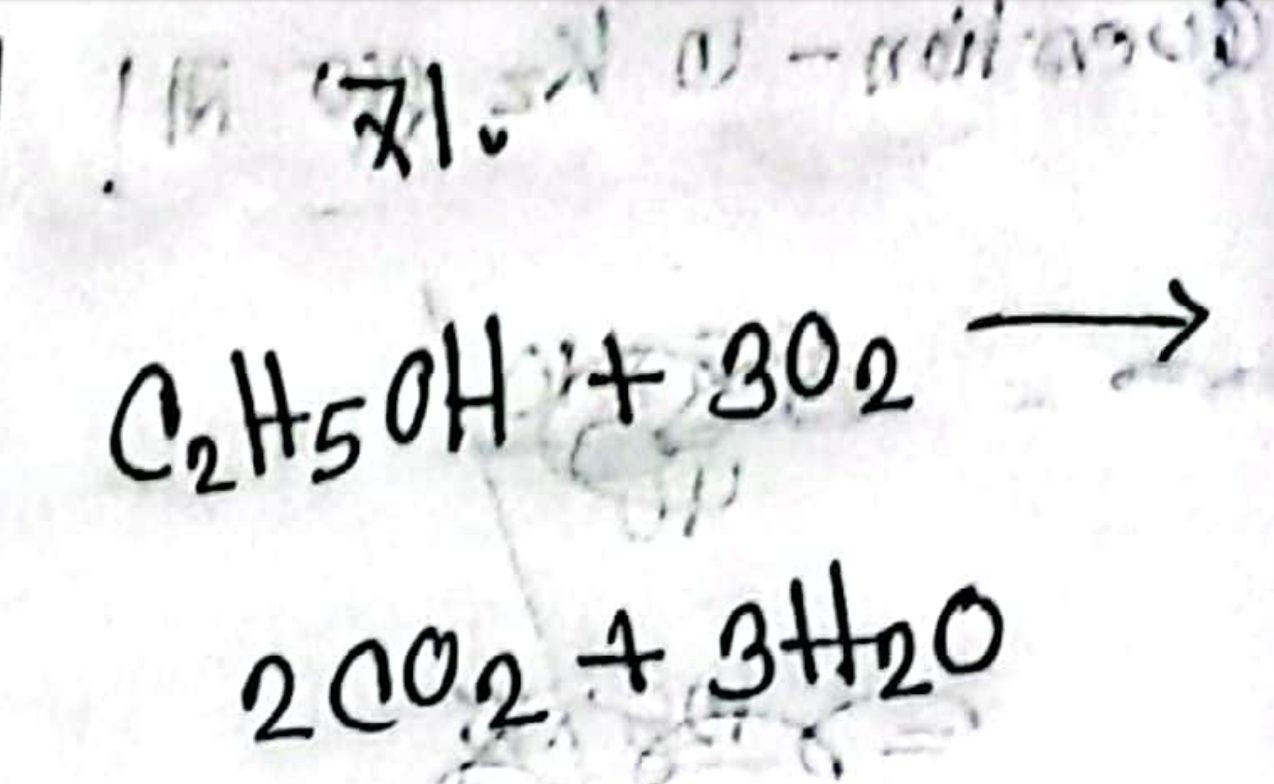 C₂H₅OH + 3O₂ ⟶
2CO₂ + 3H₂O